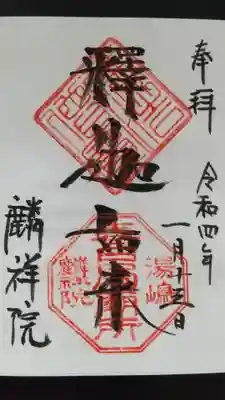 奉拝
令和四年
一月十三日
釋迦如来
湯島
麟祥院
麟祥院